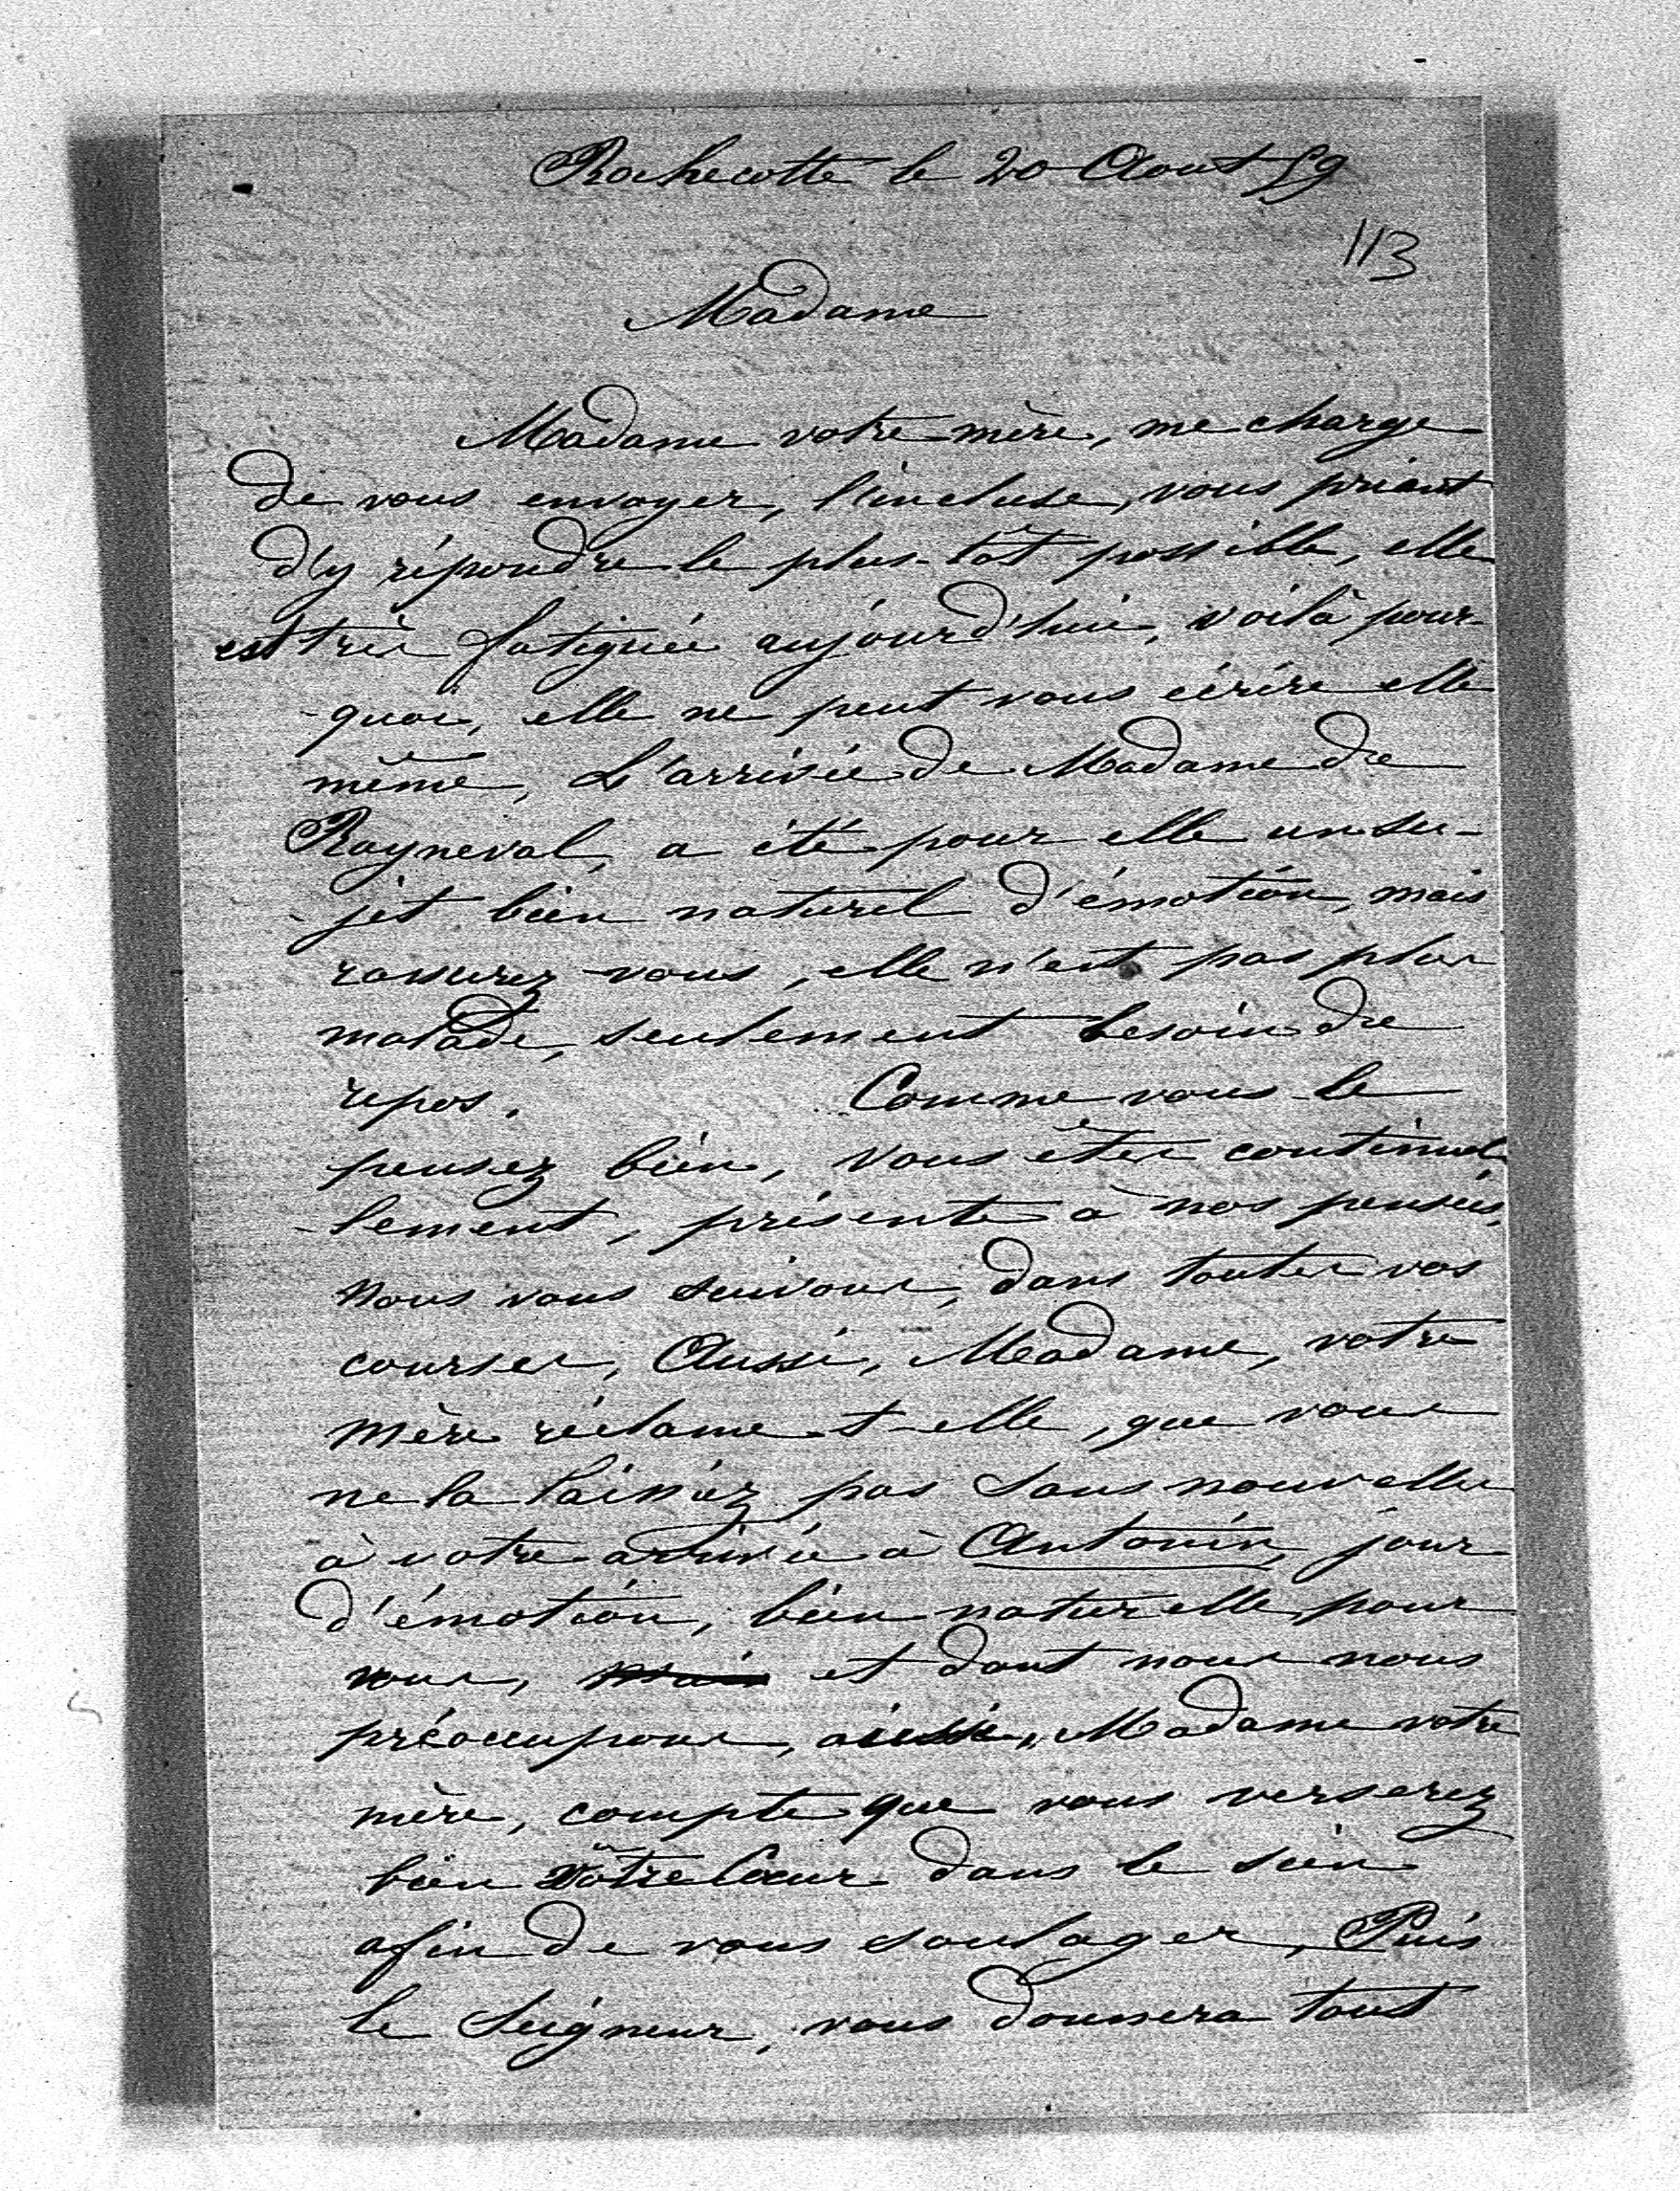 Rochecotte le 20 Aout 59
113
Madame
Madame votre mère, me charge
de vous envoyer, l'incluse, vous priant
d'y répondre le plus-tôt possible, elle
est très fatiguée aujourd'hui, voilà pour-
-quoi, elle ne peut vous écrire elle
même, L'arrivée de Madame de
Rayneval, a été pour elle un su-
-jet bien naturel d'émotion, mais
rassurez-vous, elle n'est pas plus
malade, seulement besoin de
repos. Comme vous le
pensez bien, vous êtes continuel
-lement, présente à nos pensées,
nous vous suivons, dans toutes vos
courses, Aussi, Madame, votre
mère réclame-t-elle, que vous
ne la laissiez pas sans nouvelles
à votre arrivée à Antonin, jour
d'émotion, bien naturelle, pour
vous, mais et dont nous nous
préoccupons, aussi, Madame votre
mère, compte que vous verserez
bien vôtre Coeur dans le sien
afin de vous soulager, Puis
le Seigneur, vous donnera tout